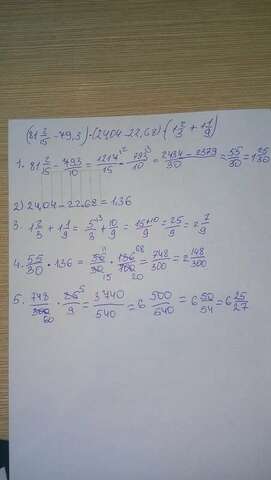 (81 2/15 - 79,3) · (24,04 - 22,68) · (1 2/3 + 1 1/9)
1. 81 2/15 - 793/10 = 1217/15 - 793/10 = 2434 - 2379/30 = 55/30 = 1 25/30
2) 24,04 - 22,68 = 1,36
3. 1 2/3 + 1 1/9 = 5/3 + 10/9 = 15+10/9 = 25/9 = 2 7/9
4. 55/30 · 1,36 = 55/30 · 136/100 = 748/300 = 2 148/300
5. 748/300 · 25/9 = 3740/540 = 6 500/540 = 6 50/54 = 6 25/27